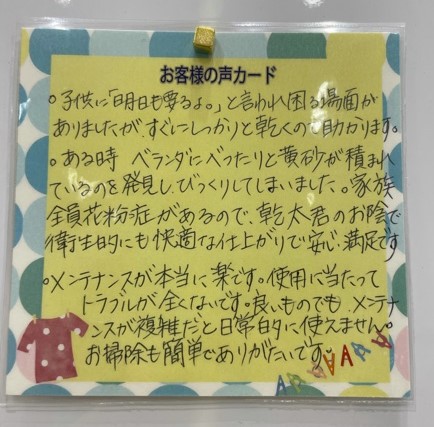 お客様の声カード
。子供に「明日も要るよ。」と言われ困る場面が
ありましたが、すぐにしっかりと乾くので助かります。
。ある時 ベランダにべったりと黄砂が積まれ
ているのを発見し、びっくりしてしまいました。家族
全員花粉症があるので、乾太君のお陰で
衛生的にも快適な仕上がりで安心、満足です
。メンテナンスが本当に楽です。使用に当たって
トラブルが全くないです。良いものでも メンテナ
ンスが複雑だと日常的に使えません。
お掃除も簡単でありがたいです。